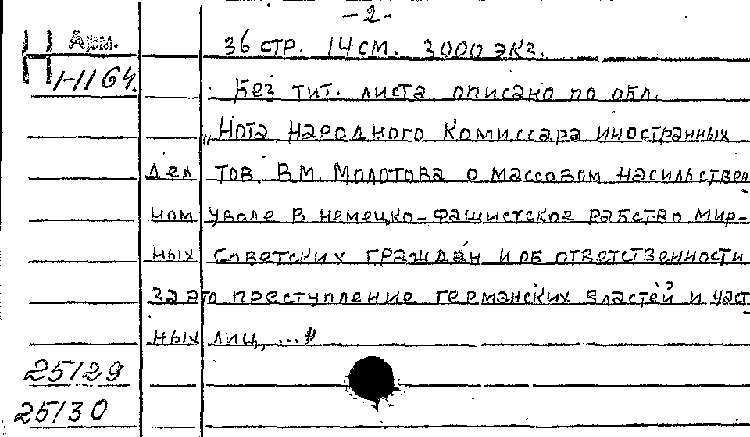 -2-
Арм. 36 стр. 14 см. 3000 экз.
1-1164.
Без тит. листа описано по обл.
„Нота Народного Комиссара иностранных
дел тов. В.М. Молотова о массовом насильствен
ном уводе в немецко-фашистское рабство мир-
ных советских граждан и об ответственности
за это преступление германских властей и част
ных лиц, ..."
25129
25130